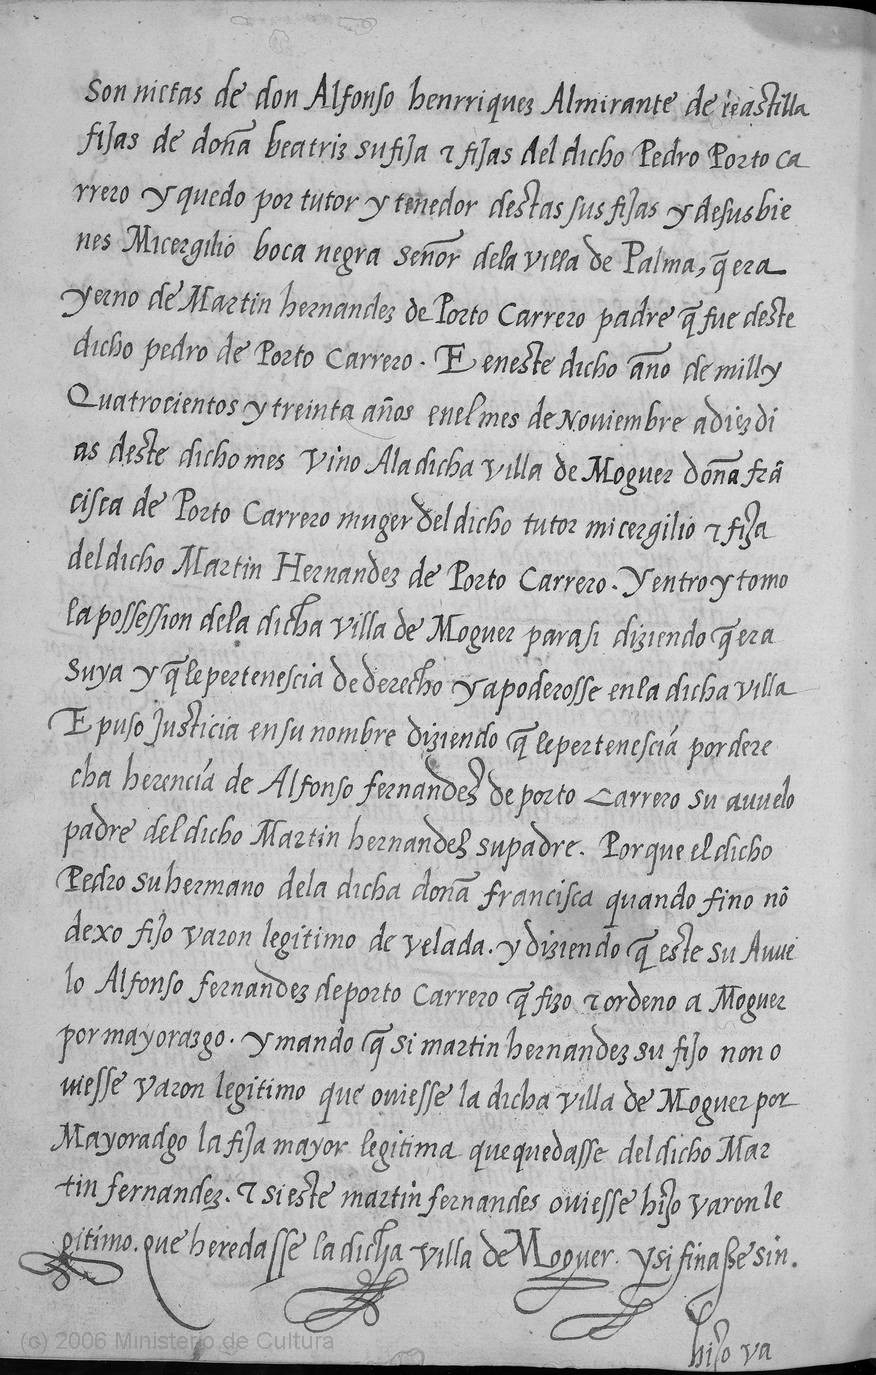 son nietas de don Alfonso henrriquez Almirante de castilla
fijas de doña beatriz su fija τ fijas del dicho Pedro Porto ca
rrero y quedo por tutor y tenedor destas sus fijas y de sus bie
nes Micergilio boca negra señor dela villa de Palma, q̃ era
yerno de Martin hernandez de Porto Carrero padre q̃ fue deste
dicho pedro de Porto Carrero. E eneste dicho año de mill y
Quatrocientos y treinta años enel mes de Noviembre a diez di
as deste dicho mes vino Ala dicha villa de Moguer doña frã
cisca de Porto Carrero muger del dicho tutor micergilio τ fija
del dicho Martin Hernandez de Porto Carrero. Y entro y tomo
la possession dela dicha villa de Moguer para si diziendo q̃ era
suya y q̃ le pertenescia de derecho y apoderosse enla dicha villa
E puso Justicia en su nombre diziendo q̃ le pertenesciá por dere
cha herenciá de Alfonso fernandez de porto Carrero su auuelo
padre del dicho Martin hernandez su padre. Porque el dicho
Pedro su hermano dela dicha doña francisca quando fino nõ
dexo fijo varon legitimo de velada. y diziendo q̃ este su Auue
lo Alfonso fernandez de porto Carrero q̃ fizo τ ordeno a Moguer
por mayorazgo. y mando q̃ si martin hernandez su fijo non o
uiesse varon legitimo que ouiesse la dicha villa de Moguer por
Mayoradgo la fija mayor legitima que quedasse del dicho Mar
tin fernandez. τ si este martin fernandes ouiesse hijo varon le
gitimo. que heredasse la dicha villa de Moguer. y si finasse sin.
hijo va
(c) 2006 Ministerio de Cultura